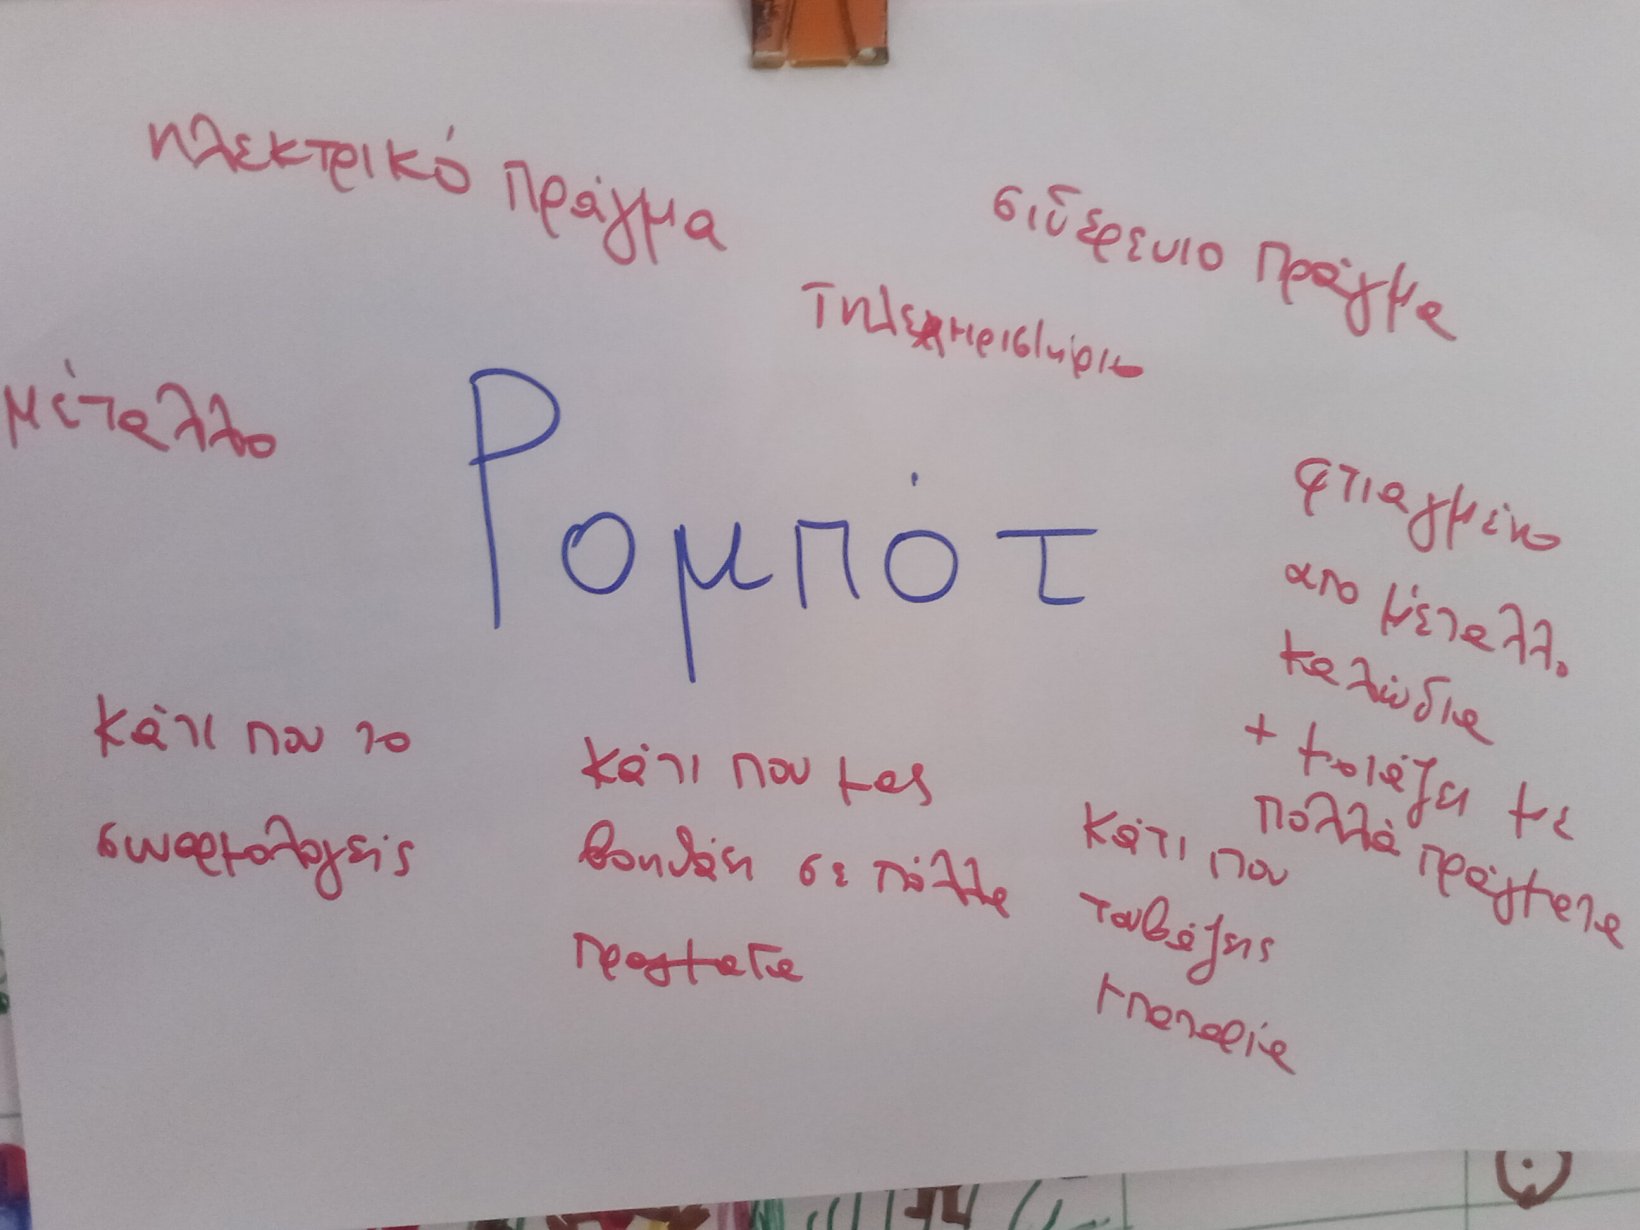 ηλεκτρικό πράγμα
σιδερενιο πράγμα
Τηλεχηριστήριο
μέταλλο
Ρομπότ
φτιαγμένο
απο μέταλλο
καλώδια
+ μοιάζει με
πολλά πράγματα
κάτι που το
συναρμολογείς
κάτι που μας
βοηθάει σε πόλλα
πραγματα
κάτι που
του βάζεις
μπαταρία